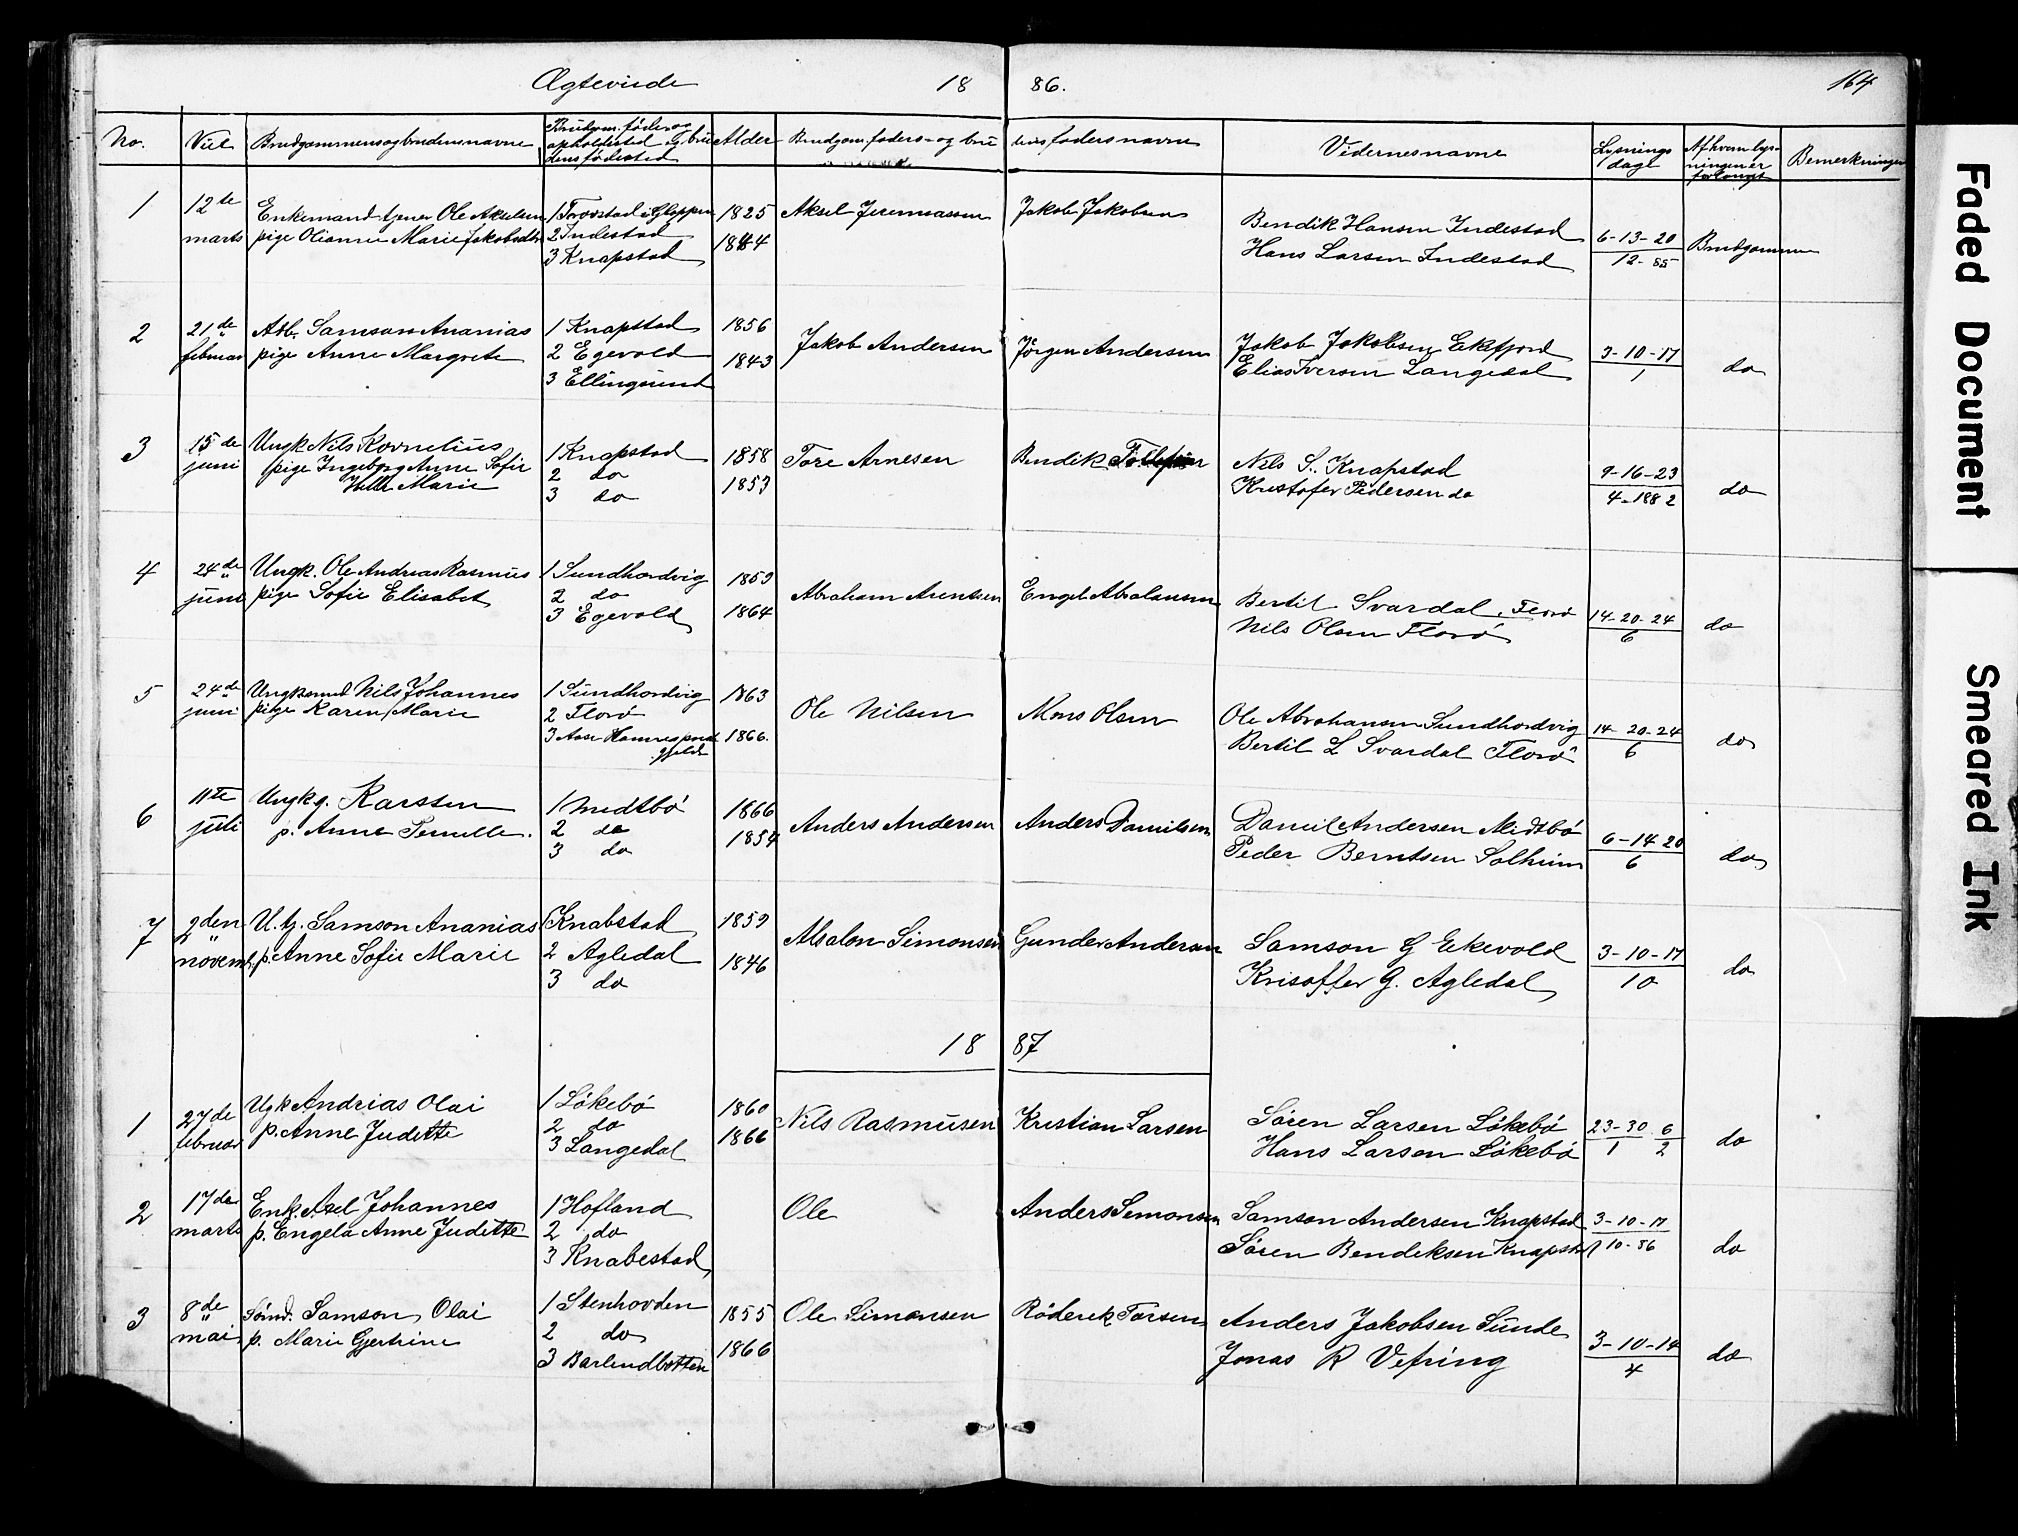 Ægteviede 18 86. 164
No. Viet Brudgommens og brudens navne Brudgom. föde og opholdssted og bru dens födested Alder Brudgom faders- og bru dens faders navne Vidernes navne Lysnings dage Af hvem lys- ningen er forlangt Bemerkninger
1 12te marts Enkemand tjener Ole Akselsen
pige Olianne Marie Jakobsdtr
1 Torvstad i Gloppen
2 Indestad
3 Knapstad
1825
1844
Aksel Jeremiassen Jakob Jakobsen
Bendik Hansen Indestad
Hans Larsen Indestad
6-13-20
12-85
Brudgommen
2 21de februar Arb. Samson Ananias
pige Anne Margrete
1 Knapstad
2 Egevold
3 Ellingsund
1856
1843
Jakob Andersen Jörgen Andersen
Jakob Jakobsen Eikefjord
Elias Iversen Langedal
3-10-17
1
do
3 15de juni Ungk Nils Kornelius
pige Ingeborg Anne Sofie
Marie
1 Knapstad
2 do
3 do
1858
1853
Tore Arnesen Bendik
Nils S. Knapstad
Kristofer Pedersen do
9-16-23
4-1882
do
4 24de juni Ungk. Ole Andreas Rasmus
pige Sofie Elisabet
1 Sundhordvig
2 do
3 Egevold
1859
1864
Abraham Arentsen Engel Abrahamsen
Bertil Svardal. Florö
Nils Olsen Florö
14-20-24
6
do
5 24de juni Ungksmd Nils Johannes
pige Karen Marie
1 Sundhordvig
2 Florö
3 Aase
1863
1866.
Ole Nilsen Mons Olsen
Ole Abrahamsen Sundhordvig
Bertil L Svardal Florö
14-20-24
6
do
6 11te juli Ungkg. Karsten
p. Anne Pernille.
1 Medtbö
2 do
3 do
1866
1854
Anders Andersen Anders Danielsen
Daniel Andersen Midtbö
Peder Berntsen Solheim
6-14 20
6
do
7 2den novemb. U.k. Samson Ananias
p. Anne Sofie Marie
1 Knabstad
2 Agledal
3 do
1859
1846
Absalon Simonsen Gunder Andersen
Samson G Eikevold
Krisoffer G. Agledal
3-10-17
10
do
18 87
1 27de februar Ugk Andreas Olai
p. Anne Juditte
1 Lökebö
2 do
3 Langedal
1860
1866
Nils Rasmusen Kristian Larsen
Sören Larsen Lökebö
Hans Larsen Lökebö
23-30 6
1 2
do
2 17de marts Enk. Axel Johannes
p. Engela Anne Juditte
1 Hofland
2 do
3 Knabestad
Ole Anders Simonsen
Samson Andersen Knapstad
Sören Bendiksen Knapstad
3-10-17
10-86
do
3 8de mai Sömd. Samson Olai
p. Marie Gjertrine
1 Stenhovden
2 do
3 Barlindbotten
1855
1866
Ole Simonsen Röderek Torsen
Anders Jakobsen Sunde
Jonas R Vefring
3-10-14
4
do
Faded Document
Smeared Ink